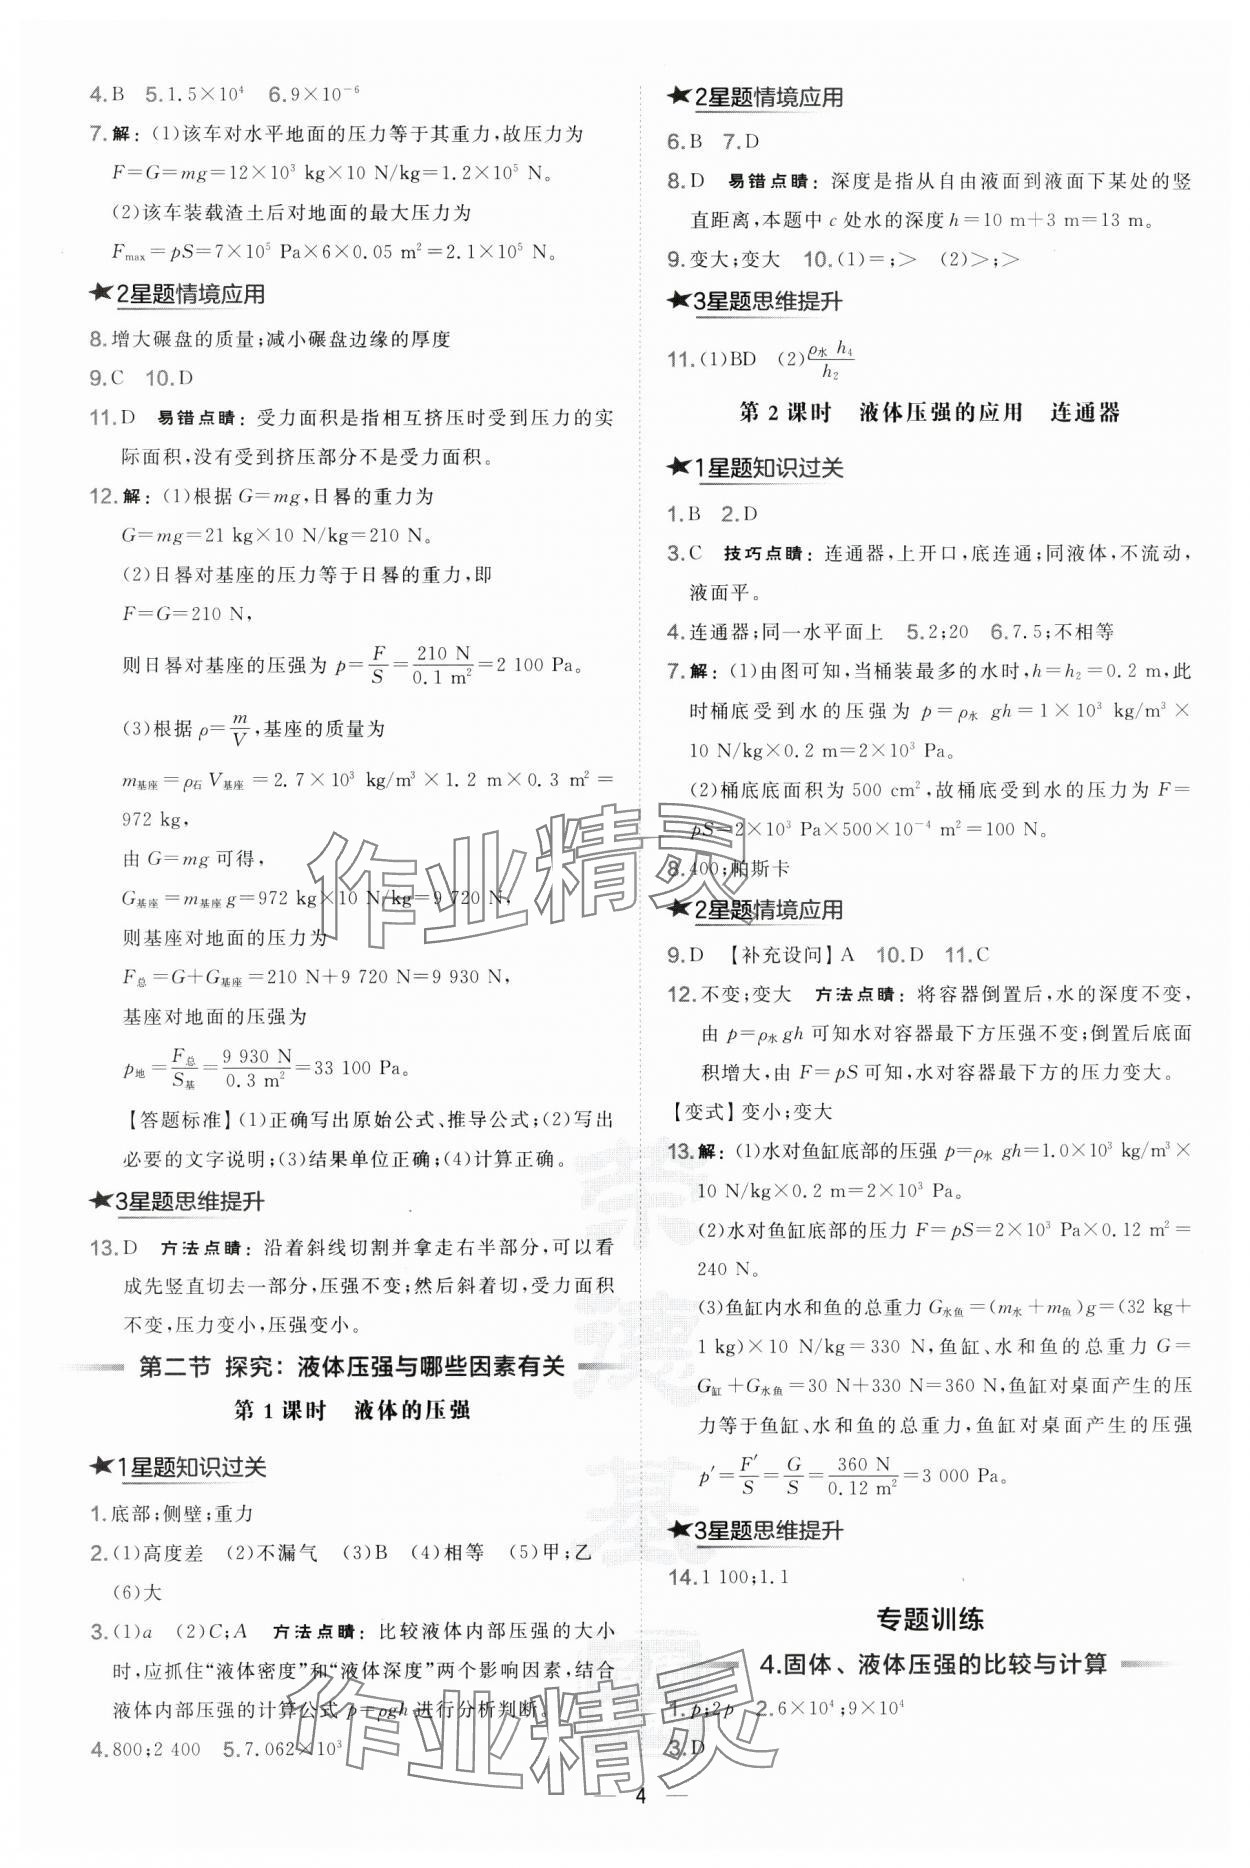 4.B　5.1.5×10⁴　6.9×10⁻⁶
7.解：(1)该车对水平地面的压力等于其重力,故压力为
F=G=mg=12×10³ kg×10 N/kg=1.2×10⁵ N。
(2)该车装载渣土后对地面的最大压力为
Fmax=pS=7×10⁵ Pa×6×0.05 m²=2.1×10⁵ N。
★2星题情境应用
8.增大碾盘的质量;减小碾盘边缘的厚度
9.C　10.D
11.D　易错点睛：受力面积是指相互挤压时受到压力的实
际面积,没有受到挤压部分不是受力面积。
12.解：(1)根据G=mg,日晷的重力为
G=mg=21 kg×10 N/kg=210 N。
(2)日晷对基座的压力等于日晷的重力,即
F=G=210 N,
则日晷对基座的压强为 p=F/S=210 N/0.1 m²=2 100 Pa。
(3)根据 ρ=m/V,基座的质量为
m基座=ρ石V基座=2.7×10³ kg/m³×1.2 m×0.3 m²=
972 kg,
由 G=mg 可得,
G基座=m基座g=972 kg×10 N/kg=9 720 N,
则基座对地面的压力为
F总=G+G基座=210 N+9 720 N=9 930 N,
基座对地面的压强为
p地=F总/S基=9 930 N/0.3 m²=33 100 Pa。
【答题标准】(1)正确写出原始公式、推导公式;(2)写出
必要的文字说明;(3)结果单位正确;(4)计算正确。
★3星题思维提升
13.D　方法点睛：沿着斜线切割并拿走右半部分,可以看
成先竖直切去一部分,压强不变;然后斜着切,受力面积
不变,压力变小,压强变小。
第二节 探究：液体压强与哪些因素有关
第1课时　液体的压强
★1星题知识过关
1.底部;侧壁;重力
2.(1)高度差　(2)不漏气　(3)B　(4)相等　(5)甲;乙
(6)大
3.(1)a　(2)C;A　方法点睛：比较液体内部压强的大小
时,应抓住“液体密度”和“液体深度”两个影响因素,结合
液体内部压强的计算公式 p=ρgh 进行分析判断。
4.800;2 400　5.7.062×10³
★2星题情境应用
6.B　7.D
8.D　易错点睛：深度是指从自由液面到液面下某处的竖
直距离,本题中 c 处水的深度 h=10 m+3 m=13 m。
9.变大;变大　10.(1)=;>　(2)>;>
★3星题思维提升
11.(1)BD　(2)ρ水h₄/h₂
第2课时　液体压强的应用　连通器
★1星题知识过关
1.B　2.D
3.C　技巧点睛：连通器,上开口,底连通;同液体,不流动,
液面平。
4.连通器;同一水平面上　5.2;20　6.7.5;不相等
7.解：(1)由图可知,当桶装最多的水时,h=h₂=0.2 m,此
时桶底受到水的压强为 p=ρ水gh=1×10³ kg/m³×
10 N/kg×0.2 m=2×10³ Pa。
(2)桶底底面积为 500 cm²,故桶底受到水的压力为 F=
pS=2×10³ Pa×500×10⁻⁴ m²=100 N。
8.400;帕斯卡
★2星题情境应用
9.D　【补充设问】A　10.D　11.C
12.不变;变大　方法点睛：将容器倒置后,水的深度不变,
由 p=ρ水gh 可知水对容器最下方压强不变;倒置后底面
积增大,由 F=pS 可知,水对容器最下方的压力变大。
【变式】变小;变大
13.解：(1)水对鱼缸底部的压强 p=ρ水gh=1.0×10³ kg/m³×
10 N/kg×0.2 m=2×10³ Pa。
(2)水对鱼缸底部的压力 F=pS=2×10³ Pa×0.12 m²=
240 N。
(3)鱼缸内水和鱼的总重力 G水鱼=(m水+m鱼)g=(32 kg+
1 kg)×10 N/kg=330 N,鱼缸、水和鱼的总重力 G=
G缸+G水鱼=30 N+330 N=360 N,鱼缸对桌面产生的压
力等于鱼缸、水和鱼的总重力,鱼缸对桌面产生的压强
p′=F′/S=G/S=360 N/0.12 m²=3 000 Pa。
★3星题思维提升
14.1 100;1.1
专题训练
4.固体、液体压强的比较与计算
1.p;2p　2.6×10⁴;9×10⁴
3.D
4
作业精灵
作业精灵